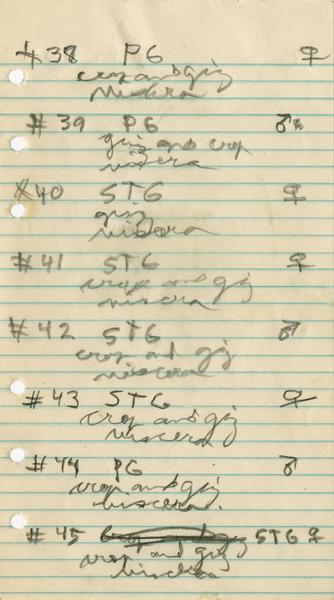 #38 PG ♀
crop and giz
viscera
#39 PG ♂
giz and crop
viscera
#40 STG ♀
giz
viscera
#41 STG ♀
crop and giz
viscera
#42 STG ♂
crop and giz
viscera
#43 STG ♀
crop and giz
viscera
#44 PG ♂
crop and giz
viscera.
#45 STG ♀
crop and giz
viscera